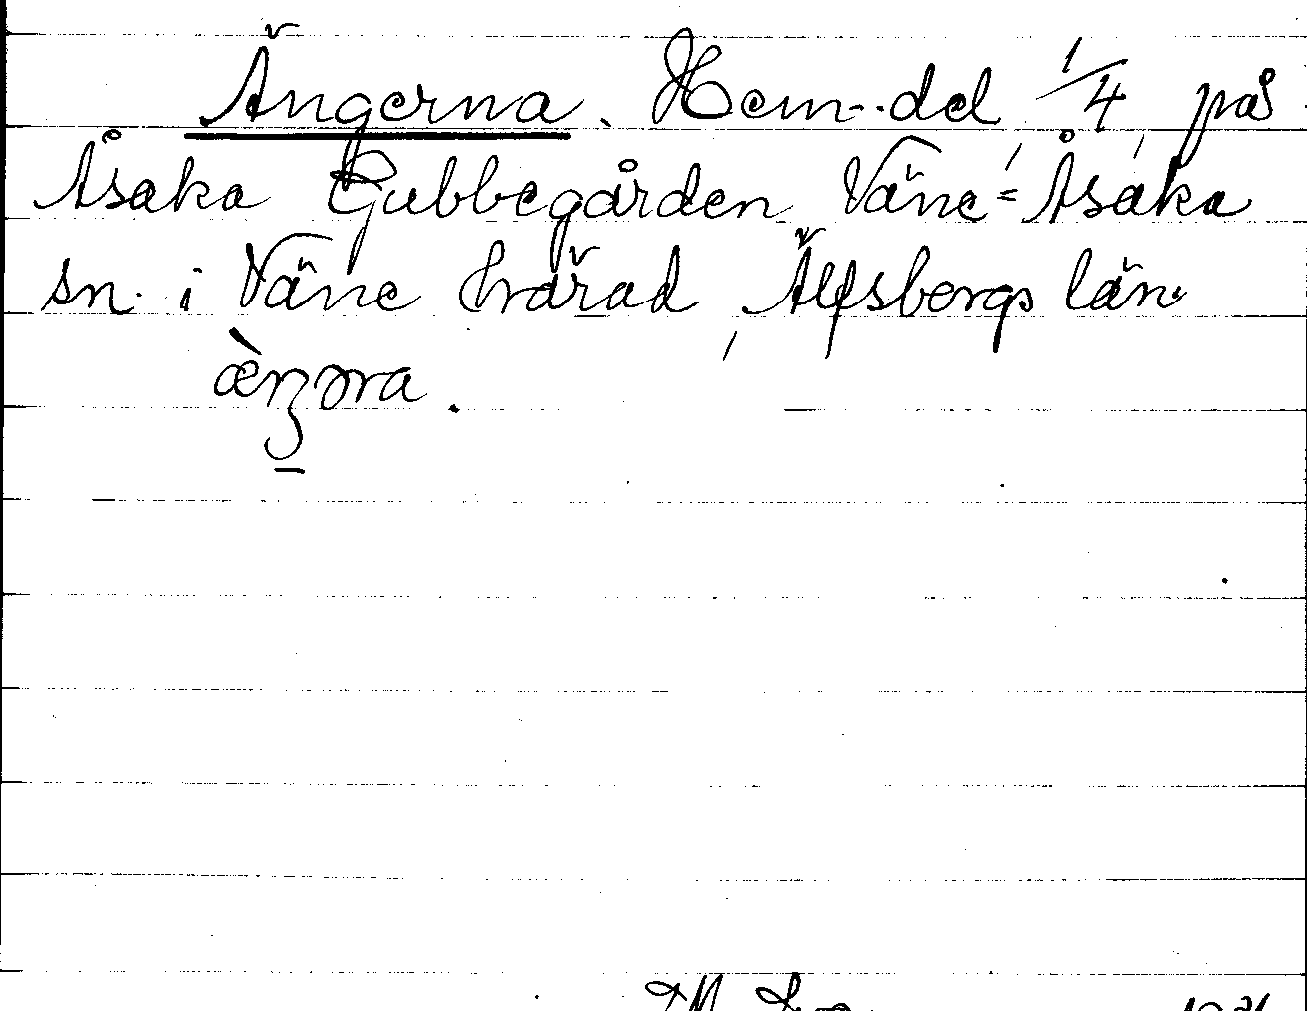 Ängerna. Hem.-del, 1/4, på
Åsaka Gubbegården, Väne-Åsaka
sn. i Väne härad, Älfsborgs län.
æ̀ŋəra.